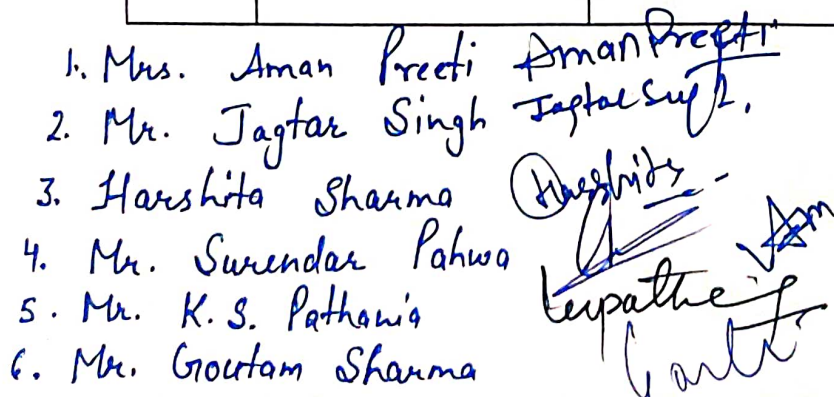 1. Mrs. Aman Preeti AmanPreeti
2. Mr. Jagtar Singh
3. Harshita Sharma Harshita
4. Mr. Surendar Pahwa
5. Mr. K. S. Pathania
6. Mr. Goutam Sharma